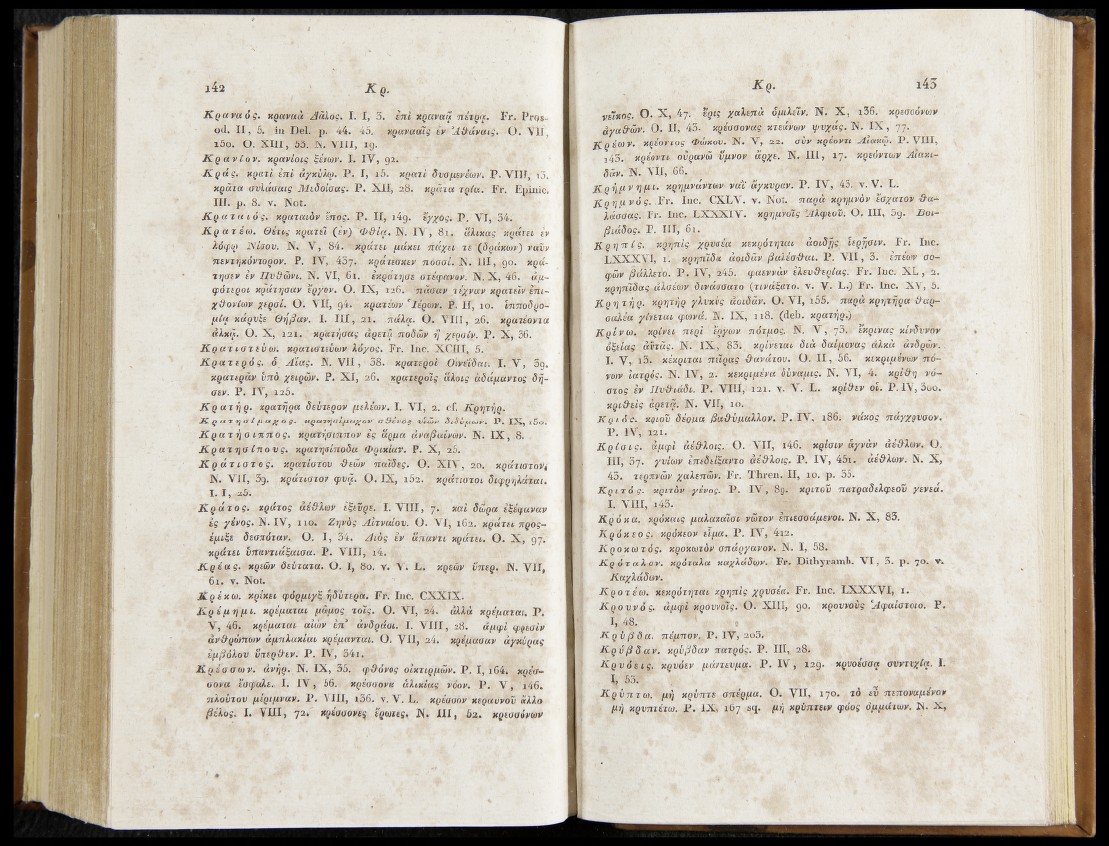 142 Κρ.
Κραναός. κραναὰ Δᾶλος. I. I, 3. ἐπὶ κραναᾷ πέτρᾳ. Fr. Pros-
od. II, 5. in Del. p. 44. 45. κρανααῖς ἐν Ἀθάναις. O. VII,
150. O. XIII, 55. N. VIII, 19.
Κρανίον. κρανίοις ξένων. I. IV, 92.
Κράς. κρατὶ ἐπὶ ἀγκύλῳ. P. I, 15. κρατὶ δυσμενέων. P. VIII, 13.
κρᾶτα συλάσαις Μεδοίσας. P. XII, 28. κρᾶτα τρία. Fr. Epinic.
III. p. 8. v. Not.
Κραταιός. κραταιὸν ἔπος. P. II, 149. ἔγχος. P. VI, 34.
Κρατέω. Θέτις κρατεῖ (ἐν) Φθίᾳ. N. IV, 81. ἅλικας κράτει ἐν
λόφῳ Νίσου. N. V, 84. κράτει μάκει πάχει τε (δράκων) ναῦν
πεντηκόντορον. P. IV, 437. κράτεσκεν ποσσί. N. III, 90. κρά-
τησεν ἐν Πυθῶνι. N. VI, 61. ἐκράτησε στέφανον. N. X, 46. ἀμ-
φότεροι κράτησαν ἔργον. O. IX, 126. πᾶσαν τέχναν κρατεῖν ἐπι-
χθονίων χερσί. O. VII, 94. κρατέων Ἱέρων. P. II, 10. ἱπποδρο-
μίᾳ κάρυξε Θήβαν. I. III, 21. πάλᾳ. O. VIII, 26. κρατέοντα
ἀλκᾷ. O. X, 121. κρατήσας ἀρετᾷ ποδῶν ἢ χερσίν. P. X, 36.
Κρατιστεύω. κρατιστεύων λόγος. Fr. Inc. XCIII, 5.
Κρατερός. ὁ Αἴας. N. VII, 38. κρατεροὶ Οἰνεῖδαι. I. V, 39.
κρατερᾶν ὑπὸ χειρῶν. P. XI, 26. κρατεροῖς ἅλοις ἀδάμαντος δῆ-
σεν. P. IV, 125.
Κρατήρ. κρατῆρα δεύτερον μελέων. I. VI, 2. cf. Κρητήρ.
Κρατησίμαχος. κρατησίμαχον σθένος υἱῶν διδύμων. P. IX, 150.
Κρατήσιππος. κρατήσιππον ἐς ἅρμα ἀναβαίνων. N. IX, 8.
Κρατησίπους. κρατησίποδα Φρικίαν. P. X, 25.
Κράτιστος. κρατίστου θεῶν παῖδες. O. XIV, 20. κράτιστον,
N. VII, 39. κράτιστον φυᾷ. O. IX, 152. κράτιστοι διφρηλάται.
I. I, 25.
Κράτος. κράτος ἀέθλων ἐξεῦρε. I. VIII, 7. καὶ δῶρα ἐξέφαναν
ἐς γένος. N. IV, 110. Ζηνὸς Αἰτναίου. O. VI, 162. κράτει προς-
έμιξε δεσπόταν. O. I, 34. Διὸς ἐν ἅπαντι κράτει. O. X, 97.
κράτει ὑπαντιάξαισα. P. VIII, 14.
Κρέας. κρεῶν δεύτατα. O. I, 80. v. V. L. κρεῶν ὕπερ. N. VII,
61. v. Not.
Κρέκω. κρέκει φόρμιγξ ἡδύτερα. Fr. Inc. CXXIX.
Κρέμημι. κρέμαται μῶμος τοῖς. O. VI, 24. ἀλλὰ κρέμαται. P.
V, 46. κρέμαται αἰὼν ἐπ' ἀνδράσι. I. VIII, 28. ἀμφὶ φρεσὶν
ἀνθρώπων ἀμπλακίαι κρέμανται. O. VII, 24. κρέμασαν ἀγκύρας
ἐμβόλου ὕπερθεν. P. IV, 341.
Κρέσσων. ἀνήρ. N. IX, 35. φθόνος οἰκτιρμῶν. P. I, 164. κρέσ-
σονα ἔσφαλε. I. IV, 56. κρέσσονα ἁλικίας νόον. P. V, 146.
πλούτου μέριμναν. P. VIII, 136. v. V. L. κρέσσον κεραυνοῦ ἄλλο
βέλος. I. VIII, 72. κρέσσονες ἔρωτες. N. III, 52. κρεσσόνων
Κρ. 143
νεῖκος. O. X, 47. ἔρις χαλεπὰ ὁμιλεῖν. N. X, 136. κρεσσόνων
ἀγαθῶν. O. II, 43. κρέσσονας κτεάνων ψυχάς. N. IX, 77.
Κρέων. κρέοντος Φώκου. N. V, 22. σὺν κρέοντι Αἰακῷ. P. VIII,
143. κρέοντι οὐρανῶ ὕμνον ἄρχε. N. III, 17. κρεόντων Αἰακι-
δᾶν. N. VII, 66.
Κρήμνημι. κρημνάντων ναῒ ἄγκυραν. P. IV, 43. v. V. L.
Κρημνός. Fr. Inc. CXLV. v. Not. παρὰ κρημνὸν ἔσχατον θα-
λάσσας. Fr. Inc. LXXXIV. κρημνοῖς Ἀλφεοῦ. O. III, 39. Βοι-
βιάδος. P. III, 61.
Κρηπίς. κρηπὶς χρυσέα κεκρότηται ἀοιδῆς ἱερῇσιν. Fr. Inc.
LXXXVI, 1. κρηπῖδα ἀοιδᾶν βαλέσθαι. P. VII, 3. ἐπέων σο-
φῶν βάλλετο. P. IV, 245. φαεννὰν ἐλευθερίας. Fr. Inc. XL, 2.
κρηπῖδας ἀλσέων δινάσσατο (τινάξατο. v. V. L.) Fr. Inc. XV, 5.
Κρητήρ. κρητὴρ γλυκὺς ἀοιδᾶν. O. VI, 155. παρὰ κρητῆρα θαρ-
σαλέα γίνεται φωνά. N. IX, 118. (deb. κρατήρ.)
Κρίνω. κρίνει περὶ ἔργων πότμος. N. V, 73. ἔκρινας κίνδυνον
ὀξείας ἀϋτᾶς. N. IX, 83. κρίνεται διὰ δαίμονας ἀλκὰ ἀνδρῶν.
I. V, 13. κέκριται πεῖρας θανάτου. O. II, 56. κεκριμένων πό-
νων ἰατρός. N. IV, 2. κεκριμένα δύναμις. N. VI, 4. κρίθη νό-
στος ἐν Πυθιάδι. P. VIII, 121. v. V. L. κρίθεν οἱ. P. IV, 300.
κριθεὶς ἀρετᾷ. N. VII, 10.
Κριός. κριοῦ δέρμα βαθύμαλλον. P. IV. 186. νάκος πάγχρυσον.
P. IV, 121.
Κρίσις. ἀμφὶ ἀέθλοις. O. VII, 146. κρίσιν ἁγνὰν ἀέθλων. O.
III, 37. γυίων ἐπεδείξαντο ἀέθλοις. P. IV, 451. ἀέθλων. N. X,
43. τερπνῶν χαλεπῶν. Fr. Thren. II, 10. p. 35.
Κριτός. κριτὸν γένος. P. IV, 89. κριτοῦ πατραδελφεοῦ γενεά.
I. VIII, 143.
Κρόκα. κρόκαις μαλακαῖσι νῶτον ἐπιεσσάμενοι. N. X, 83.
Κρόκεος. κρόκεον εἷμα. P. IV, 412.
Κροκωτός. κροκωτὸν σπάργανον. N. I, 58.
Κρόταλον. κρόταλα καχλάδων. Fr. Dithyramb. VI, 3. p. 70. v.
Καχλάδων.
Κροτέω. κεκρότηται κρηπὶς χρυσέα. Fr. Inc. LXXXVI, 1.
Κρουνός. ἀμφὶ κρουνοῖς. O. XIII, 90. κρουνοὺς Ἀφαίστοιο. P.
I, 48.
Κρύβδα. πέμπον. P. IV, 203.
Κρύβδαν. κρύβδαν πατρός. P. III, 28.
Κρυόεις. κρυόεν μάντευμα. P. IV, 129. κρυοέσσᾳ συντυχίᾳ. I.
I, 53.
Κρύπτω. μὴ κρύπτε σπέρμα. O. VII, 170. τὸ εὖ πεποναμένον
μὴ κρυπτέτω. P. IX, 167 sq. μὴ κρύπτειν φάος ὀμμάτων. N. X,